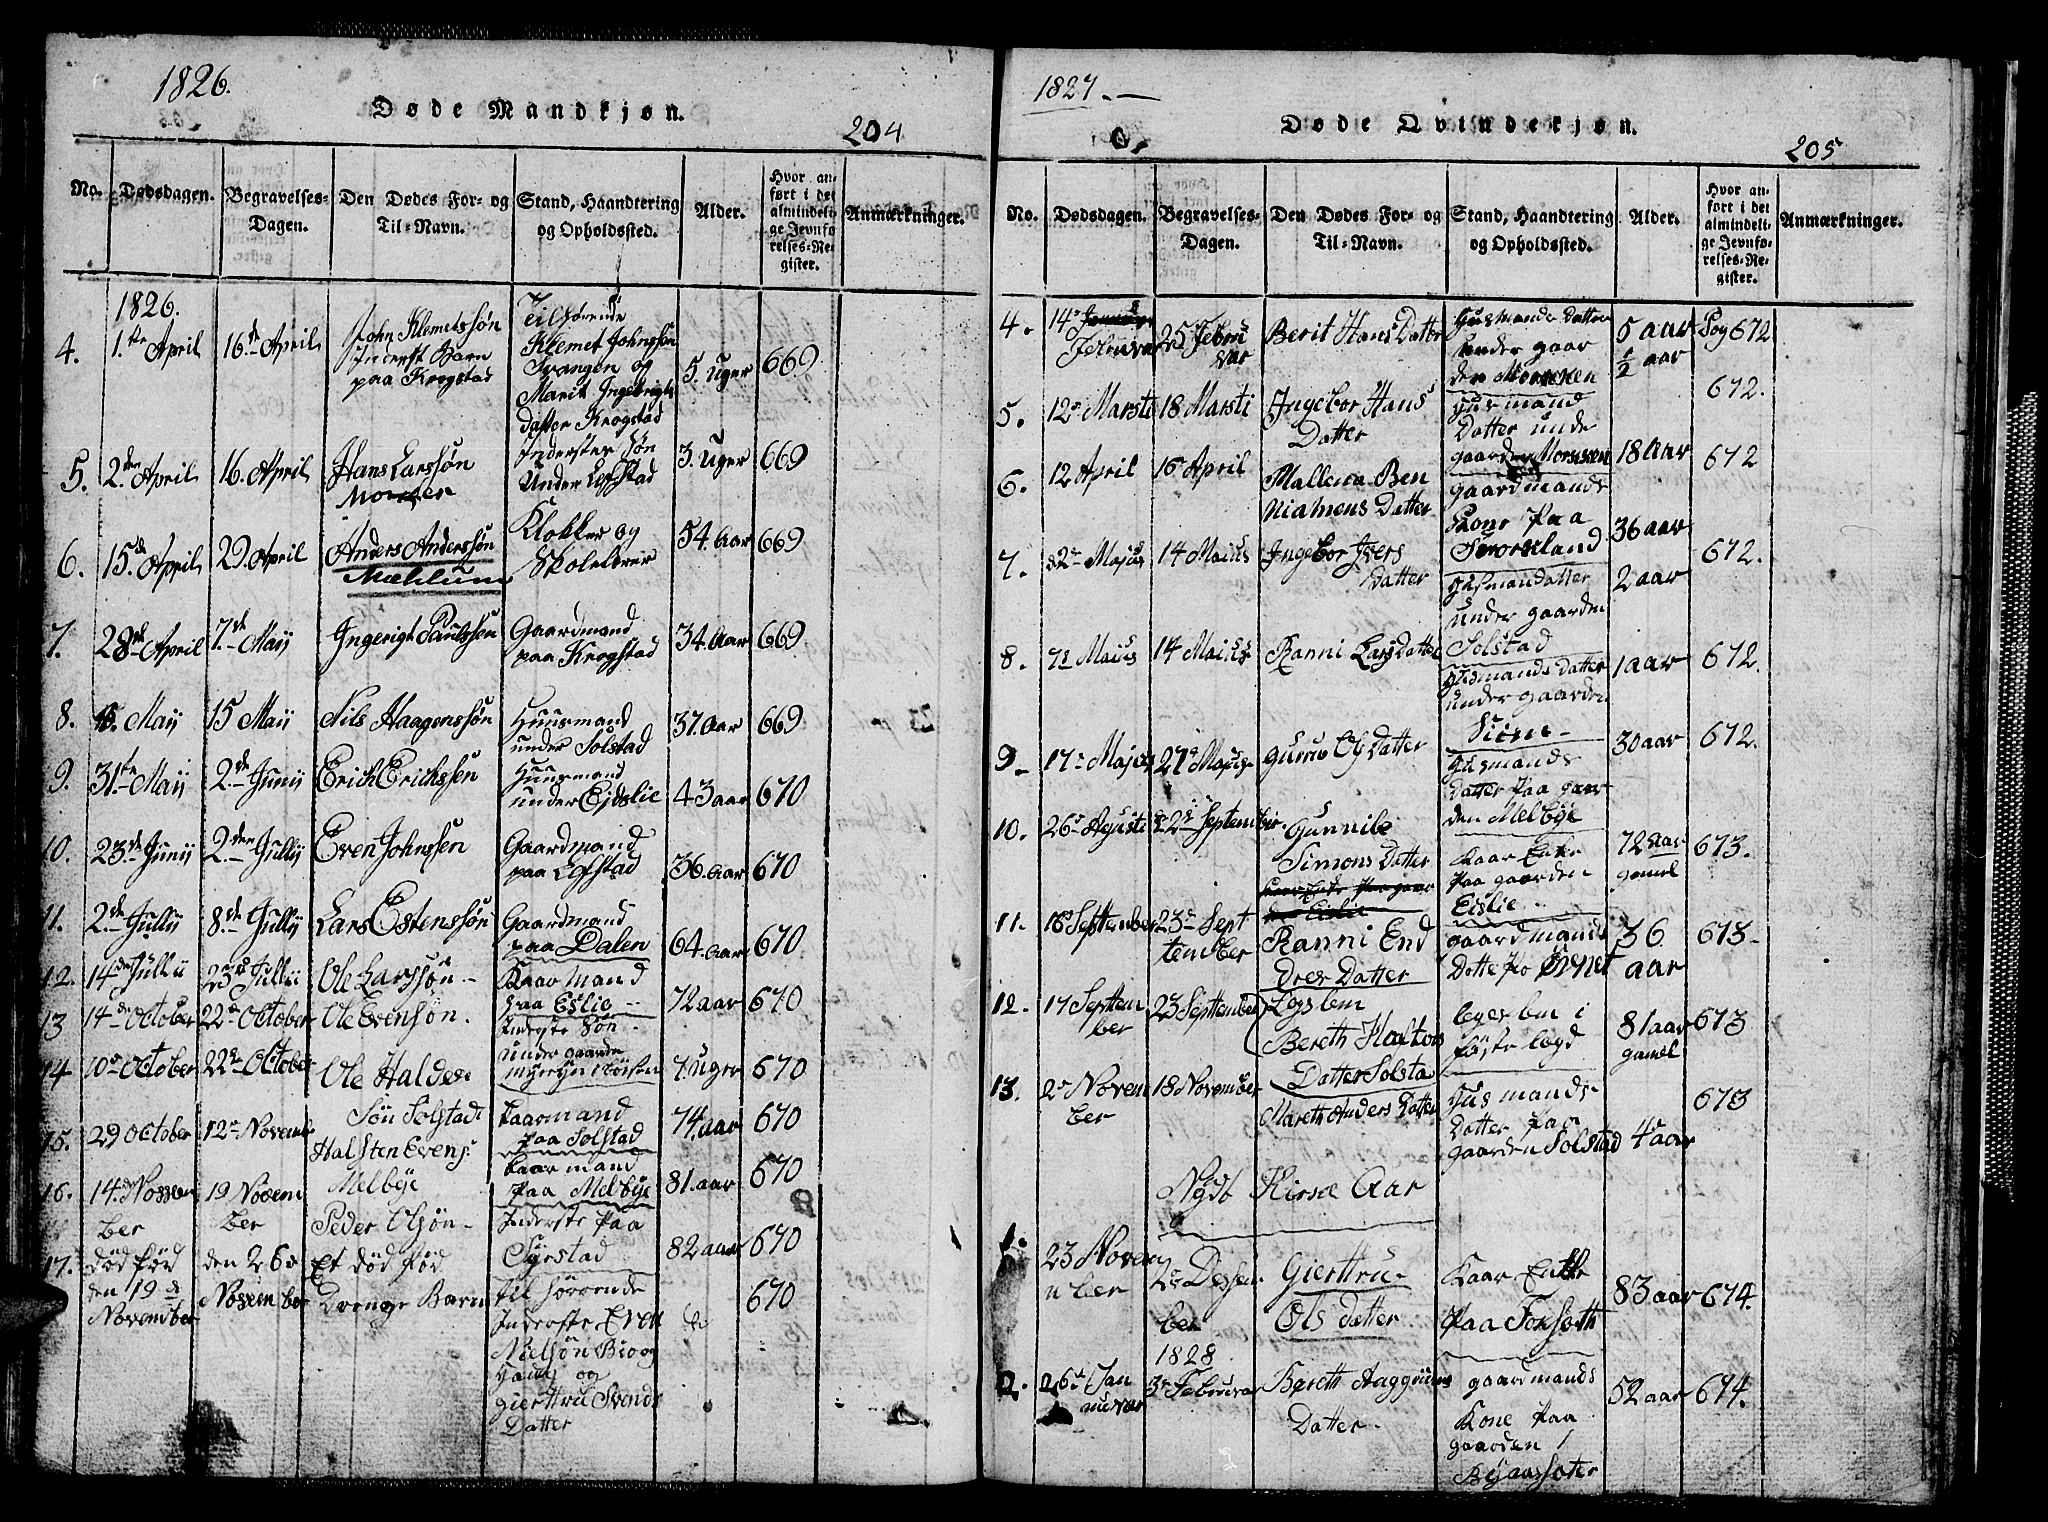 1826.
Døde Mandkjøn.
204
No.
Dødsdagen.
Begravelses-
Dagen.
Den Dødes For- og
Til-Navn.
Stand, Haandtering
og Opholdssted.
Alder.
Hvor an-
ført i det
almindeli-
ge Jevnfø-
relses-Re-
gister.
Anmærkninger.
1826.
4. 1ste April 16de April
John Klemetssøn
Inderst Barn
paa Krogstad
Tilhørende
Klemet Johnssøn
Svangen og
Marit Ingebrigts
datter Krogstad
5. Uger 669
5. 2den April 16. April
Hans Larssøn
Inderster Søn
Under Lofstad
3. Uger 669
6. 15de April 29. April
Anders Anderssøn
Mæhlum
Klokker og
Skolelærer
54. Aar 669
7. 28de April 7de Maij
Ingerigt Paulssøn
Gaardmand
paa Krogstad
34. Aar 669
8. Maij 15 Maij
Nils Haagenssøn
Huusmand
under Solstad
37. Aar 669
9. 31te Maij 2de Junij
Erich Erichssen
Huusmand
under Eidslie
43 aar 670
10. 23de Junij 2den Jullij
Even Johnssen
Gaardmand
paa Lofstad
36. Aar 670
11. 2de Jullij 8de Jullij
Lars Estenssøn
Gaardmand
paa Dalen
64. Aar 670
12. 14de Jullij 23d Jullij
Ole Larssøn
Kaarmand
paa Eslie
72 aar 670
13 14de October 22de October
Ole Evensøn.
Inderste Søn
under gaarden
7 uger 670
14 10de October 22de October
Ole Haldes
Søn Solstad
kaarmand
paa Solstad
74. aar 670
15. 29 October 12te November
Halsten Evens
Melbye
kaarmand
paa Melbye
81. aar 670
16. 14de Novem
ber
19 Novem
ber
Peder Olsøn
Inderste paa
Syrstad
82 aar 670
17. død fød
den 19de
November
den 26d
November
Et død fød
Drenge Barn
til hørende
Inderste Even
Nielsøn Biog
Haug og
Gierttru Svends
Datter
670
1827.
Døde Qvindekjøn.
205
No.
Dødsdagen.
Begravelses-
Dagen.
Den Dødes For- og
Til-Navn.
Stand, Haandtering
og Opholdssted.
Alder.
Hvor an-
ført i det
almindeli-
ge Jevnfø-
relses-Re-
gister.
Anmærkninger.
4. 14d
Februar
25 Febru
var
Berit Hans Datter
Husmands Datter
under gaar
den Morsken
5 aar
1/2 aar
Pag 672
5. 12d Marsti 18 Marsti
Ingebor Hans
Datter
Husmand
Datter unde
gaarden Morsken
18 aar 672.
6. 12 April 16 April
Mallena Ben
niamens Datter
gaardmands
Kone paa
Svorkland
36 aar 672
7. 2de Majus 14 Maius
Ingebor Ivers
Datter
Husmandatter
under gaarden
Solstad
2 aar 672.
8. 7d Maius 14 Maius
Ranni LarsDatter
Husmands Datter
under gaarden
1 aar 672.
9 17de Majus 27d Majus
Gurru Ols Datter
Husmands
Datter paa gaar
den Melbye
30 aar 672.
10. 26d Agusti 2d September
Gunnile
Simons Datter
Kaar Enke
paa gaarden
Eislie
72 aar
gamel
673.
11. 16d September 23de Sept
tember
Ranni End
dres Datter
gaardmands
Datte paa
36
aar
673
12. 17 Septtem
ber
23 Septtember
Legslem
Bereth Halstens
Datter Solsta
legeslem i
første legd
81 aar
gamel
673
13. 2de Novem
ber
18 November
Mareth Anders Datter
Husmands
Datter paa
gaarden Solstad
4 aar 673
Nydt Kirke Aar
1. 23 Novem
ber
2de Dessem
ber
Gierttru
Ols datter
Kaar Enke
paa
83 aar 674.
1828
2. 26d Jan
nuvar
3d Februvar
Bereth
Datter
gaardmands
Kone paa
gaarden
52 aar 674.